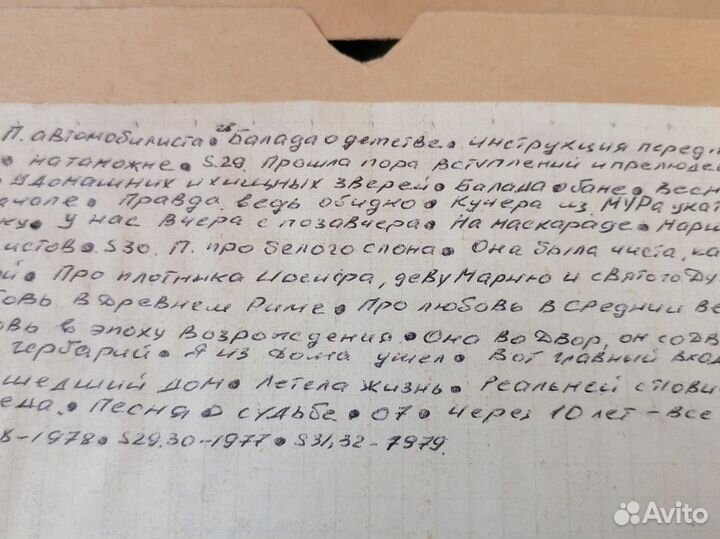 П. автомобилиста • Балада о детстве • инструкция перед п
• на таможне • S29. Прошла пора вступлений и прелюдей
• У домашних и хищных зверей • Балада о бане • Весн
начале • Правда ведь обидно • Кучера из МУРа укат
жу • У нас вчера с позавчера • На маскараде • Марш
истов • S30. П. про белого слона • Она была чиста, ка
ей • Про плотника Иосифа, деву Марию и святого Ду
бовь в Древнем Риме • Про любовь в средние ве
овь в эпоху Возрождения • Она во двор, он со дв
Гербарий • Я из дома ушел • Вот главный вход
шедший дом • Летела жизнь • Реальней снови
еда. • Песня о судьбе • 07 • Через 10 лет – все
8-1978 • S29,30-1977 • S31,32-1979.
Avito